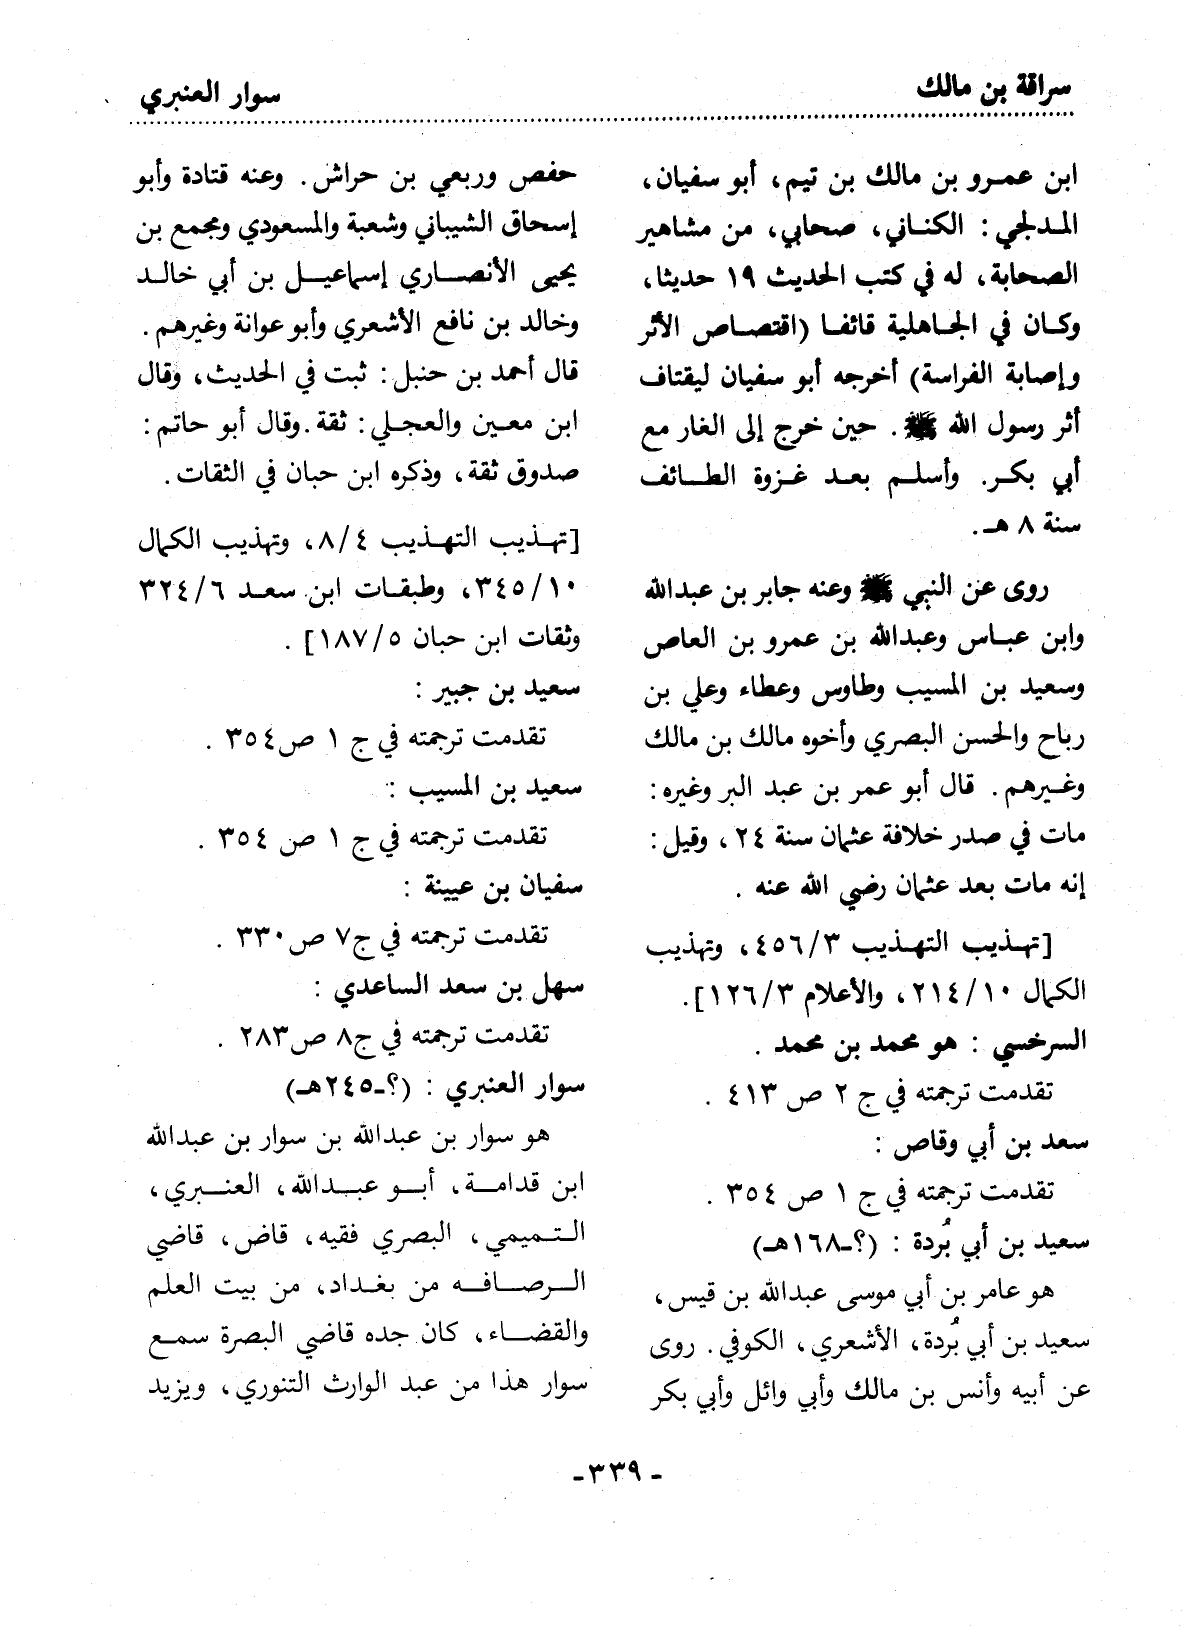 سراقة بن مالك
سوار العنبري
ابن عمرو بن مالك بن تيم، أبو سفيان،
المدلجي: الكناني، صحابي، من مشاهير
الصحابة، له في كتب الحديث ١٩ حديثا،
وكان في الجاهلية قائفا (اقتصاص الأثر
وإصابة الفراسة) أخرجه أبو سفيان ليقتاف
أثر رسول الله ﷺ. حين خرج إلى الغار مع
أبي بكر. وأسلم بعد غزوة الطائف
سنة ٨ هـ.
روى عن النبي ﷺ وعنه جابر بن عبدالله
وابن عباس وعبدالله بن عمرو بن العاص
وسعيد بن المسيب وطاوس وعطاء وعلي بن
رباح والحسن البصري وأخوه مالك بن مالك
وغيرهم. قال أبو عمر بن عبد البر وغيره:
مات في صدر خلافة عثمان سنة ٢٤، وقيل:
إنه مات بعد عثمان رضي الله عنه .
[تهذيب التهذيب ٤٥٦/٣، وتهذيب
الكمال ٢١٤/١٠، والأعلام ١٢٦/٣].
السرخسي : هو محمد بن محمد .
تقدمت ترجمته في ج ٢ ص ٤١٣ .
سعد بن أبي وقاص :
تقدمت ترجمته في ج ١ ص ٣٥٤ .
سعيد بن أبي بُردة : (؟ـ١٦٨هـ)
هو عامر بن أبي موسى عبدالله بن قيس،
سعيد بن أبي بُردة، الأشعري، الكوفي. روى
عن أبيه وأنس بن مالك وأبي وائل وأبي بكر
حفص وربعي بن حراش. وعنه قتادة وأبو
إسحاق الشيباني وشعبة والمسعودي ومجمع بن
يحيى الأنصاري إسماعيل بن أبي خالد
وخالد بن نافع الأشعري وأبو عوانة وغيرهم.
قال أحمد بن حنبل: ثبت في الحديث، وقال
ابن معين والعجلي: ثقة. وقال أبو حاتم:
صدوق ثقة، وذكره ابن حبان في الثقات.
[تهذيب التهذيب ٨/٤، وتهذيب الكمال
٣٤٥/١٠، وطبقات ابن سعد ٣٢٤/٦
وثقات ابن حبان ١٨٧/٥] .
سعيد بن جبير :
تقدمت ترجمته في ج ١ ص ٣٥٤ .
سعيد بن المسيب :
تقدمت ترجمته في ج ١ ص ٣٥٤ .
سفيان بن عيينة :
تقدمت ترجمته في ج٧ ص٣٣٠ .
سهل بن سعد الساعدي :
تقدمت ترجمته في ج٨ ص٢٨٣ .
سوار العنبري : (؟ـ٢٤٥هـ)
هو سوار بن عبدالله بن سوار بن عبدالله
ابن قدامة، أبو عبدالله، العنبري،
التميمي، البصري فقيه، قاض، قاضي
الرصافه من بغداد، من بيت العلم
والقضاء، كان جده قاضي البصرة سمع
سوار هذا من عبد الوارث التنوري، ويزيد
- ٣٣٩-